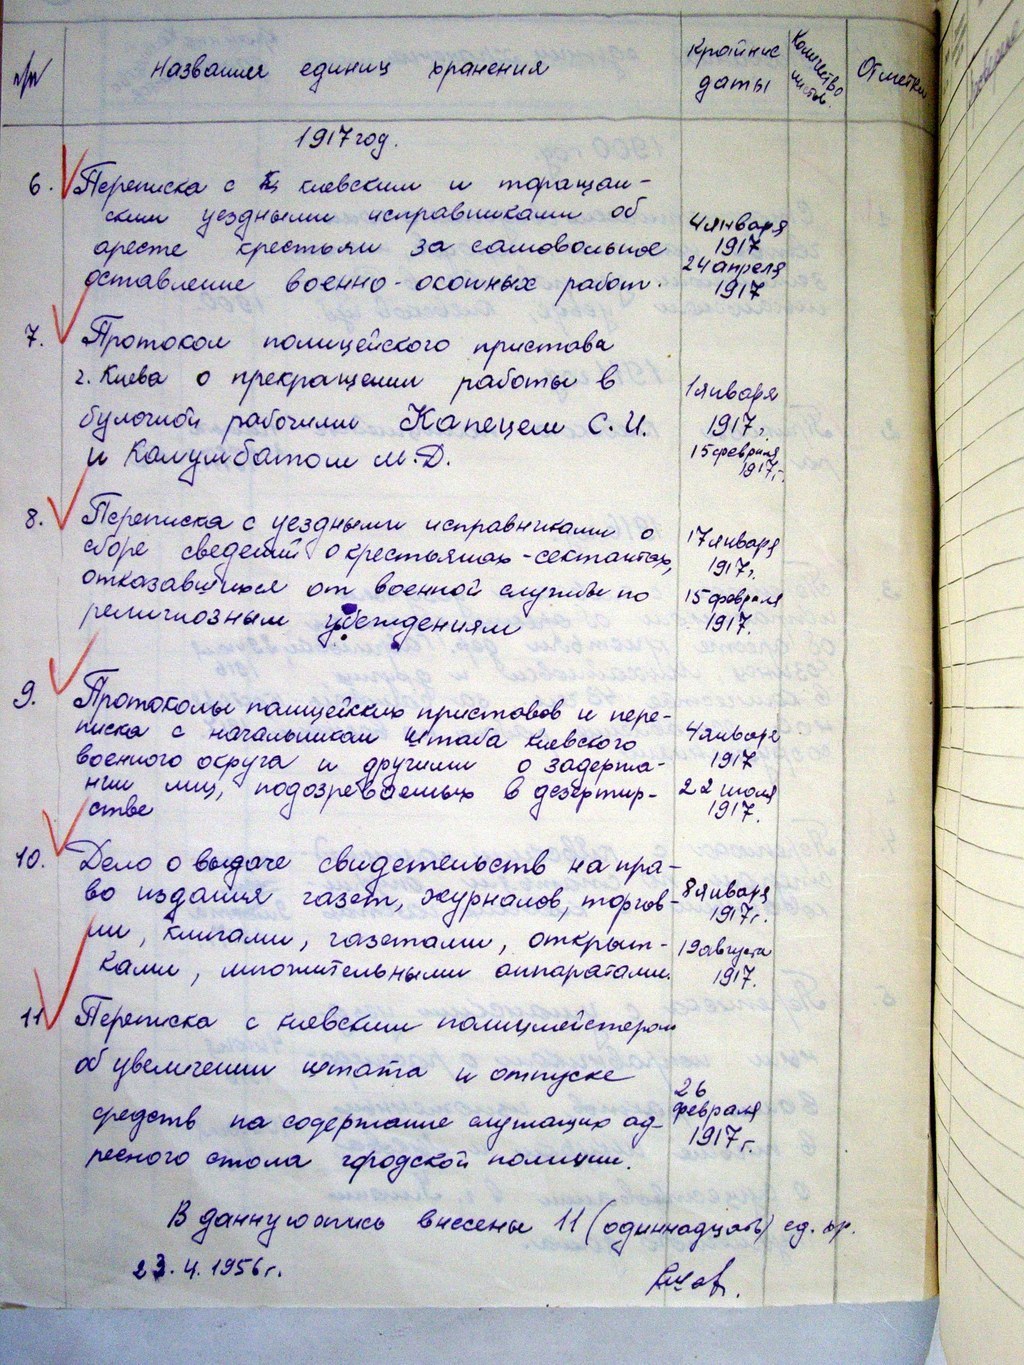 п/п Название единиц хранения Крайние даты Количество листов. Отметки
1917 год.
6. Переписка с киевским и таращан-
ским уездными исправниками об
аресте крестьян за самовольное
оставление военно-окопных работ.
4 января
1917
24 апреля
1917
7. Протокол полицейского пристава
г. Киева о прекращении работы в
булочной рабочими Капецем С. И.
и Калумбатом М. Д.
1 января
1917 г.
15 февраля
1917 г.
8. Переписка с уездными исправниками о
сборе сведений о крестьянах-сектантах,
отказавшихся от военной службы по
религиозным убеждениям
17 января
1917 г.
15 февраля
1917.
9. Протоколы полицейских приставов и пере-
писка с начальником штаба Киевского
военного округа и другими о задержа-
нии лиц, подозреваемых в дезертир-
стве
4 января
1917
22 июля
1917.
10. Дело о выдаче свидетельств на пра-
во издания газет, журналов, торгов-
ли, книгами, газетами, открыт-
ками, множительными аппаратами.
8 января
1917 г.
19 августа
1917.
11 Переписка с киевским полицмейстером
об увеличении штата и отпуске
средств на содержание служащих ад-
ресного стола городской полиции.
26
февраля
1917 г.
В данную опись внесены 11 (одиннадцать) ед. хр.
23. 4. 1956 г.